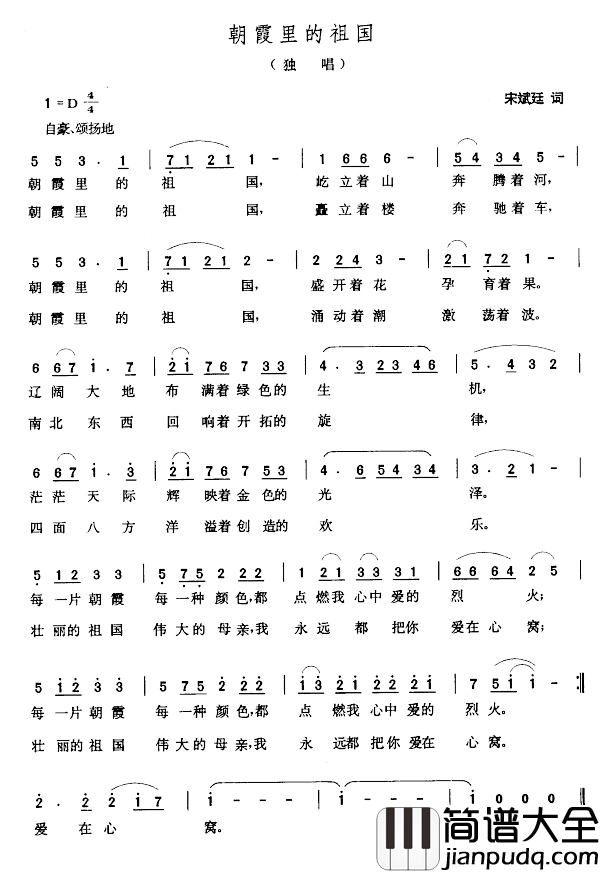 朝霞里的祖国
（独 唱）
1=D 4/4
宋斌廷 词
自豪、颂扬地
5 5 3 · 1 | 7 1 2 1 1 - | 1 6 6 6 - | 5 4 3 4 5 - |
朝霞里的祖国，屹立着山 奔腾着河，
朝霞里的祖国，矗立着楼 奔驰着车，
5 5 3 · 1 | 7 1 2 1 2 - | 2 2 2 4 3 - | 2 1 7 2 1 - |
朝霞里的祖国，盛开着花 孕育着果。
朝霞里的祖国，涌动着潮 激荡着波。
6 6 7 1 · 7 | 2 1 7 6 7 3 3 | 4 · 3 2 3 4 6 | 5 · 4 3 2 |
辽阔大地布满着绿色的生机，
南北东西回响着开拓的旋律，
6 6 7 1 · 3 | 2 1 7 6 7 5 3 | 4 · 6 5 4 3 4 | 3 · 2 1 - |
茫茫天际辉映着金色的光泽。
四面八方洋溢着创造的欢乐。
5 1 2 3 3 | 5 7 5 2 2 2 | 1 2 1 3 3 3 1 | 6 6 6 4 2 5 |
每一片朝霞 每一种颜色，都点燃我心中爱的烈火；
壮丽的祖国 伟大的母亲，我永远都把你爱在心窝；
5 1 2 3 3 | 5 7 5 2 2 2 | 1 3 2 1 2 2 2 1 | 7 5 1 1 - :‖
每一片朝霞 每一种颜色，都点燃我心中爱的烈火。
壮丽的祖国 伟大的母亲，我永远都把你爱在心窝。
2 · 2 2 1 7 | 1 - - - | 1 - - - | 1 0 0 0 ‖
爱在心窝。
简谱大全
jianpudq.com